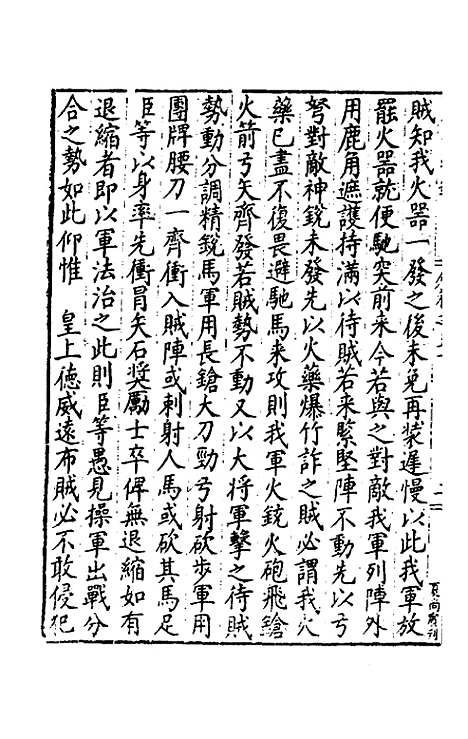 賊知我火器一發之後未免再裝遲慢以此我軍放
罷火器就便馳突前來今若與之對敵我軍列陣外
用鹿角遮護持滿以待賊若來緊堅陣不動先以弓
弩對敵神銃未發先以火藥爆竹詐之賊必謂我火
藥已盡不復畏避馳馬來攻則我軍火銃火砲飛鎗
火箭弓矢齊發若賊勢不動又以大將軍擊之待賊
勢動分調精銳馬軍用長鎗大刀勁弓射砍步軍用
團牌腰刀一齊衝入賊陣或刺射人馬或砍其馬足
臣等以身率先衝冒矢石獎勵士卒俾無退縮如有
退縮者即以軍法治之此則臣等愚見操軍出戰分
合之勢如此仰惟　皇上德威遠布賊必不敢侵犯